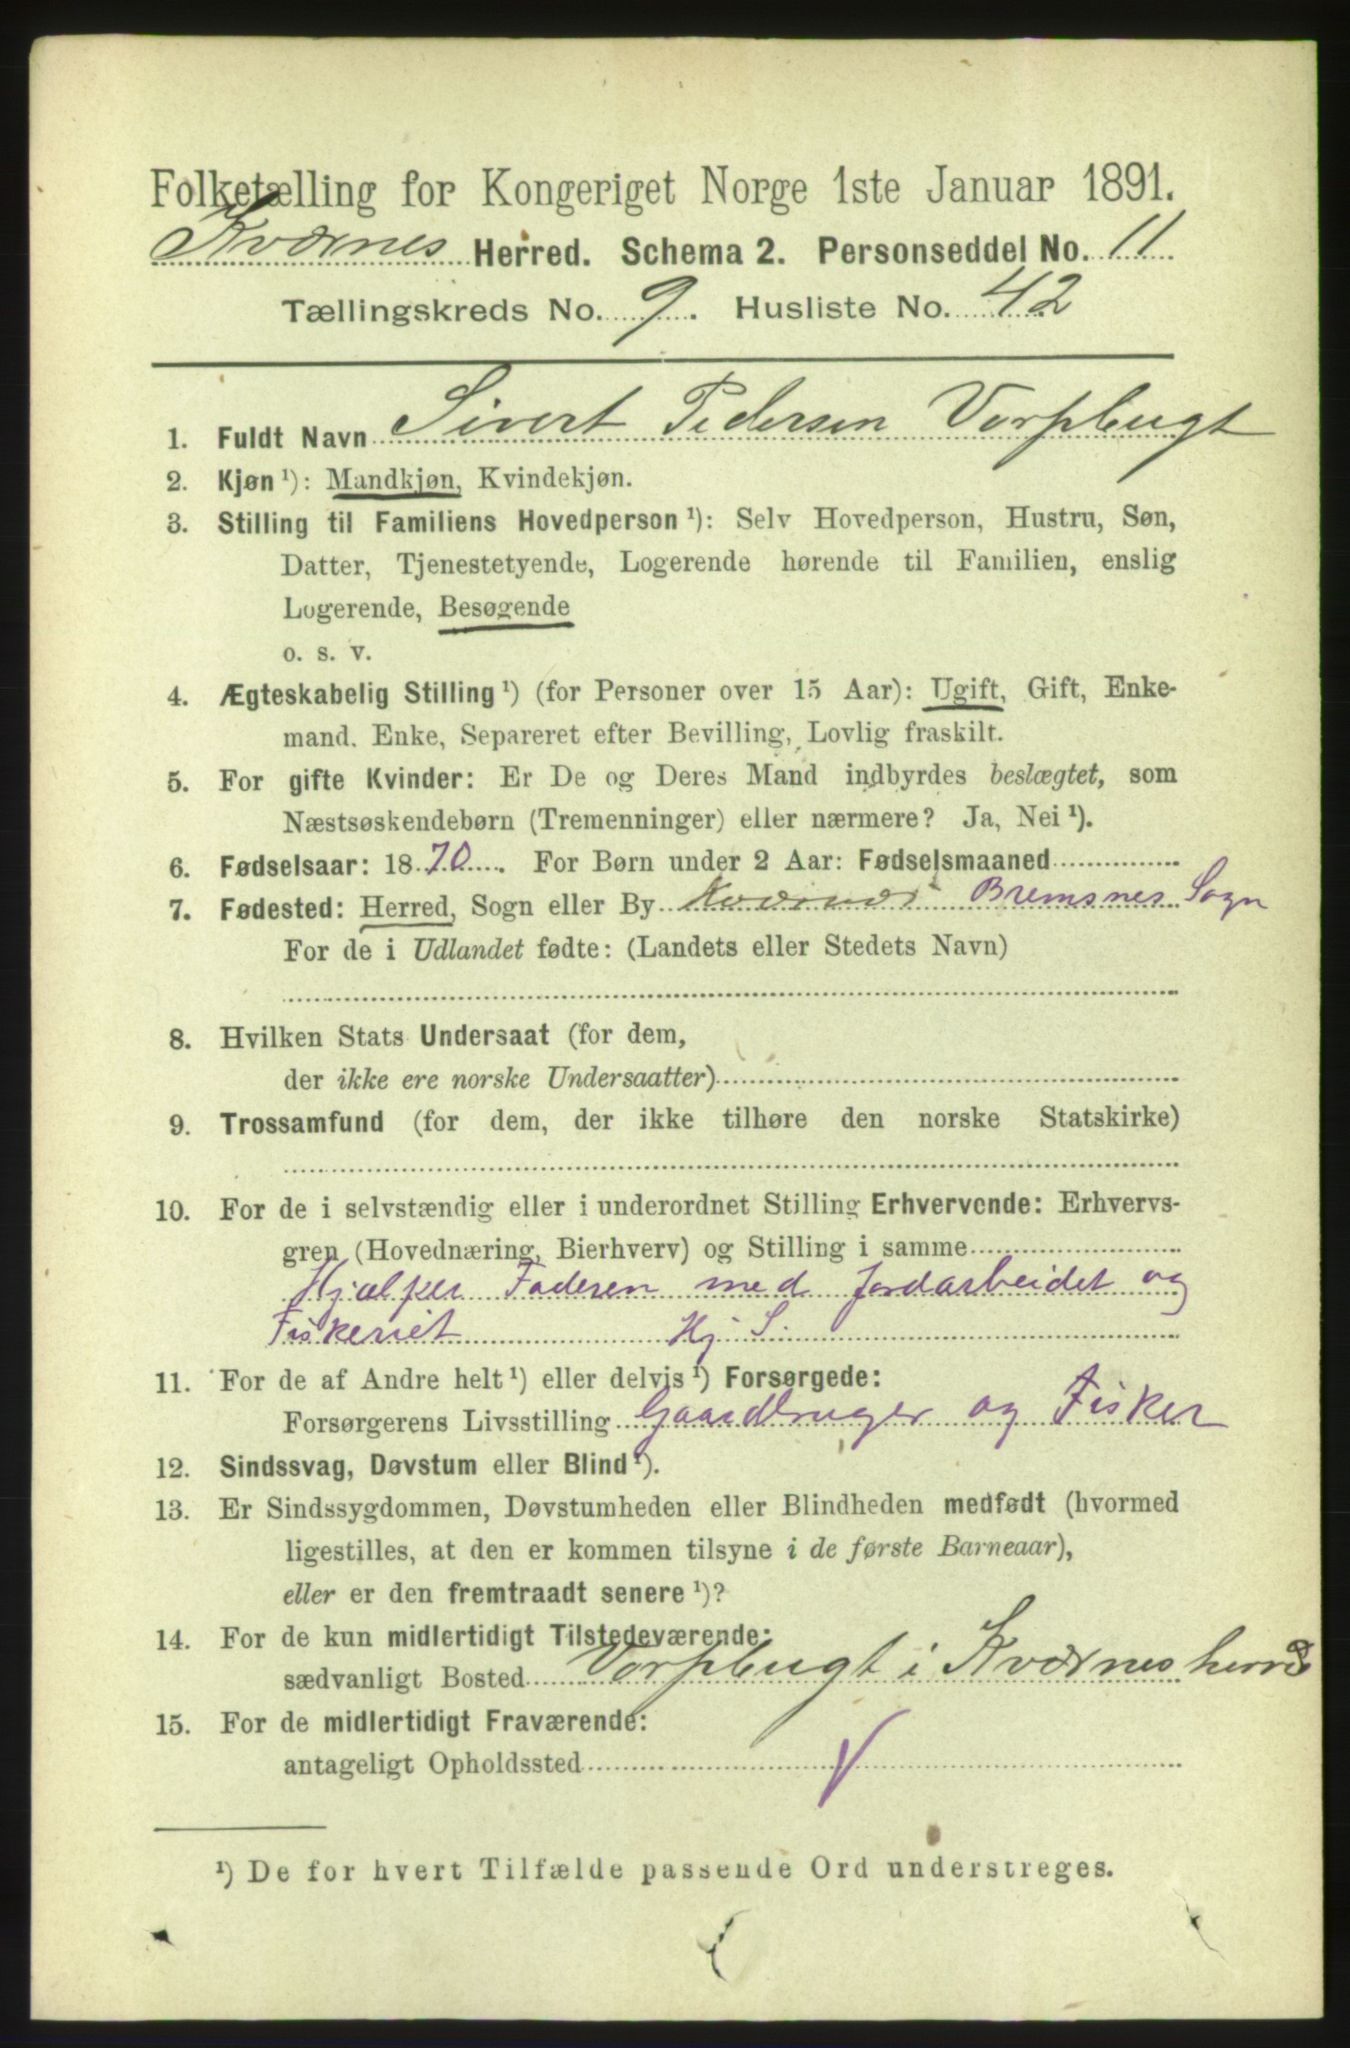 Folketælling for Kongeriget Norge 1ste Januar 1891.
Kværnes Herred. Schema 2. Personseddel No. 11
Tællingskreds No. 9. Husliste No. 42
1. Fuldt Navn Sivert Pedersen Vorpbugt
2. Kjøn ¹): Mandkjøn, Kvindekjøn.
3. Stilling til Familiens Hovedperson ¹): Selv Hovedperson, Hustru, Søn,
Datter, Tjenestetyende, Logerende hørende til Familien, enslig
Logerende, Besøgende
o. s. v.
4. Ægteskabelig Stilling ¹) (for Personer over 15 Aar): Ugift, Gift, Enke-
mand, Enke, Separeret efter Bevilling, Lovlig fraskilt.
5. For gifte Kvinder: Er De og Deres Mand indbyrdes beslægtet, som
Næstsøskendebørn (Tremenninger) eller nærmere? Ja, Nei ¹).
6. Fødselsaar: 1870. For Børn under 2 Aar: Fødselsmaaned
7. Fødested: Herred, Sogn eller By Kværnes Bremsnes Sogn
For de i Udlandet fødte: (Landets eller Stedets Navn)
8. Hvilken Stats Undersaat (for dem,
der ikke ere norske Undersaatter)
9. Trossamfund (for dem, der ikke tilhøre den norske Statskirke)
10. For de i selvstændig eller i underordnet Stilling Erhvervende: Erhvervs-
gren (Hovednæring, Bierhverv) og Stilling i samme
Hjælper Faderen med Jordarbeidet og
Fiskeriet Hj S.
11. For de af Andre helt ¹) eller delvis ¹) Forsørgede:
Forsørgerens Livsstilling Gaardbruger og Fisker
12. Sindssvag, Døvstum eller Blind ¹).
13. Er Sindssygdommen, Døvstumheden eller Blindheden medfødt (hvormed
ligestilles, at den er kommen tilsyne i de første Barneaar),
eller er den fremtraadt senere ¹)?
14. For de kun midlertidigt Tilstedeværende:
sædvanligt Bosted Vorpbugt i Kværnes herred
15. For de midlertidigt Fraværende:
antageligt Opholdssted
¹) De for hvert Tilfælde passende Ord understreges.